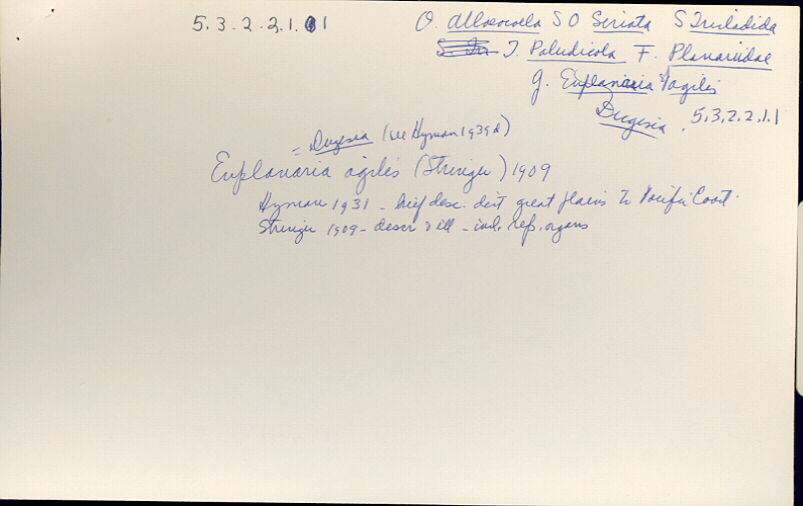 5.3.2.2.1.1 O. Alloeocoela S O Seriata S Tricladida
T. Paludicola F. Planariidae
g. Euplanaria agilis
Dugesia, 5.3.2.2.1.1
= Dugesia (see Hyman 1939d)
Euplanaria agilis (Stringer) 1909
Hyman 1931 - brief desc. dist great plains to Pacific Coast.
Stringer 1909 - descr & ill - incl. rep. organs